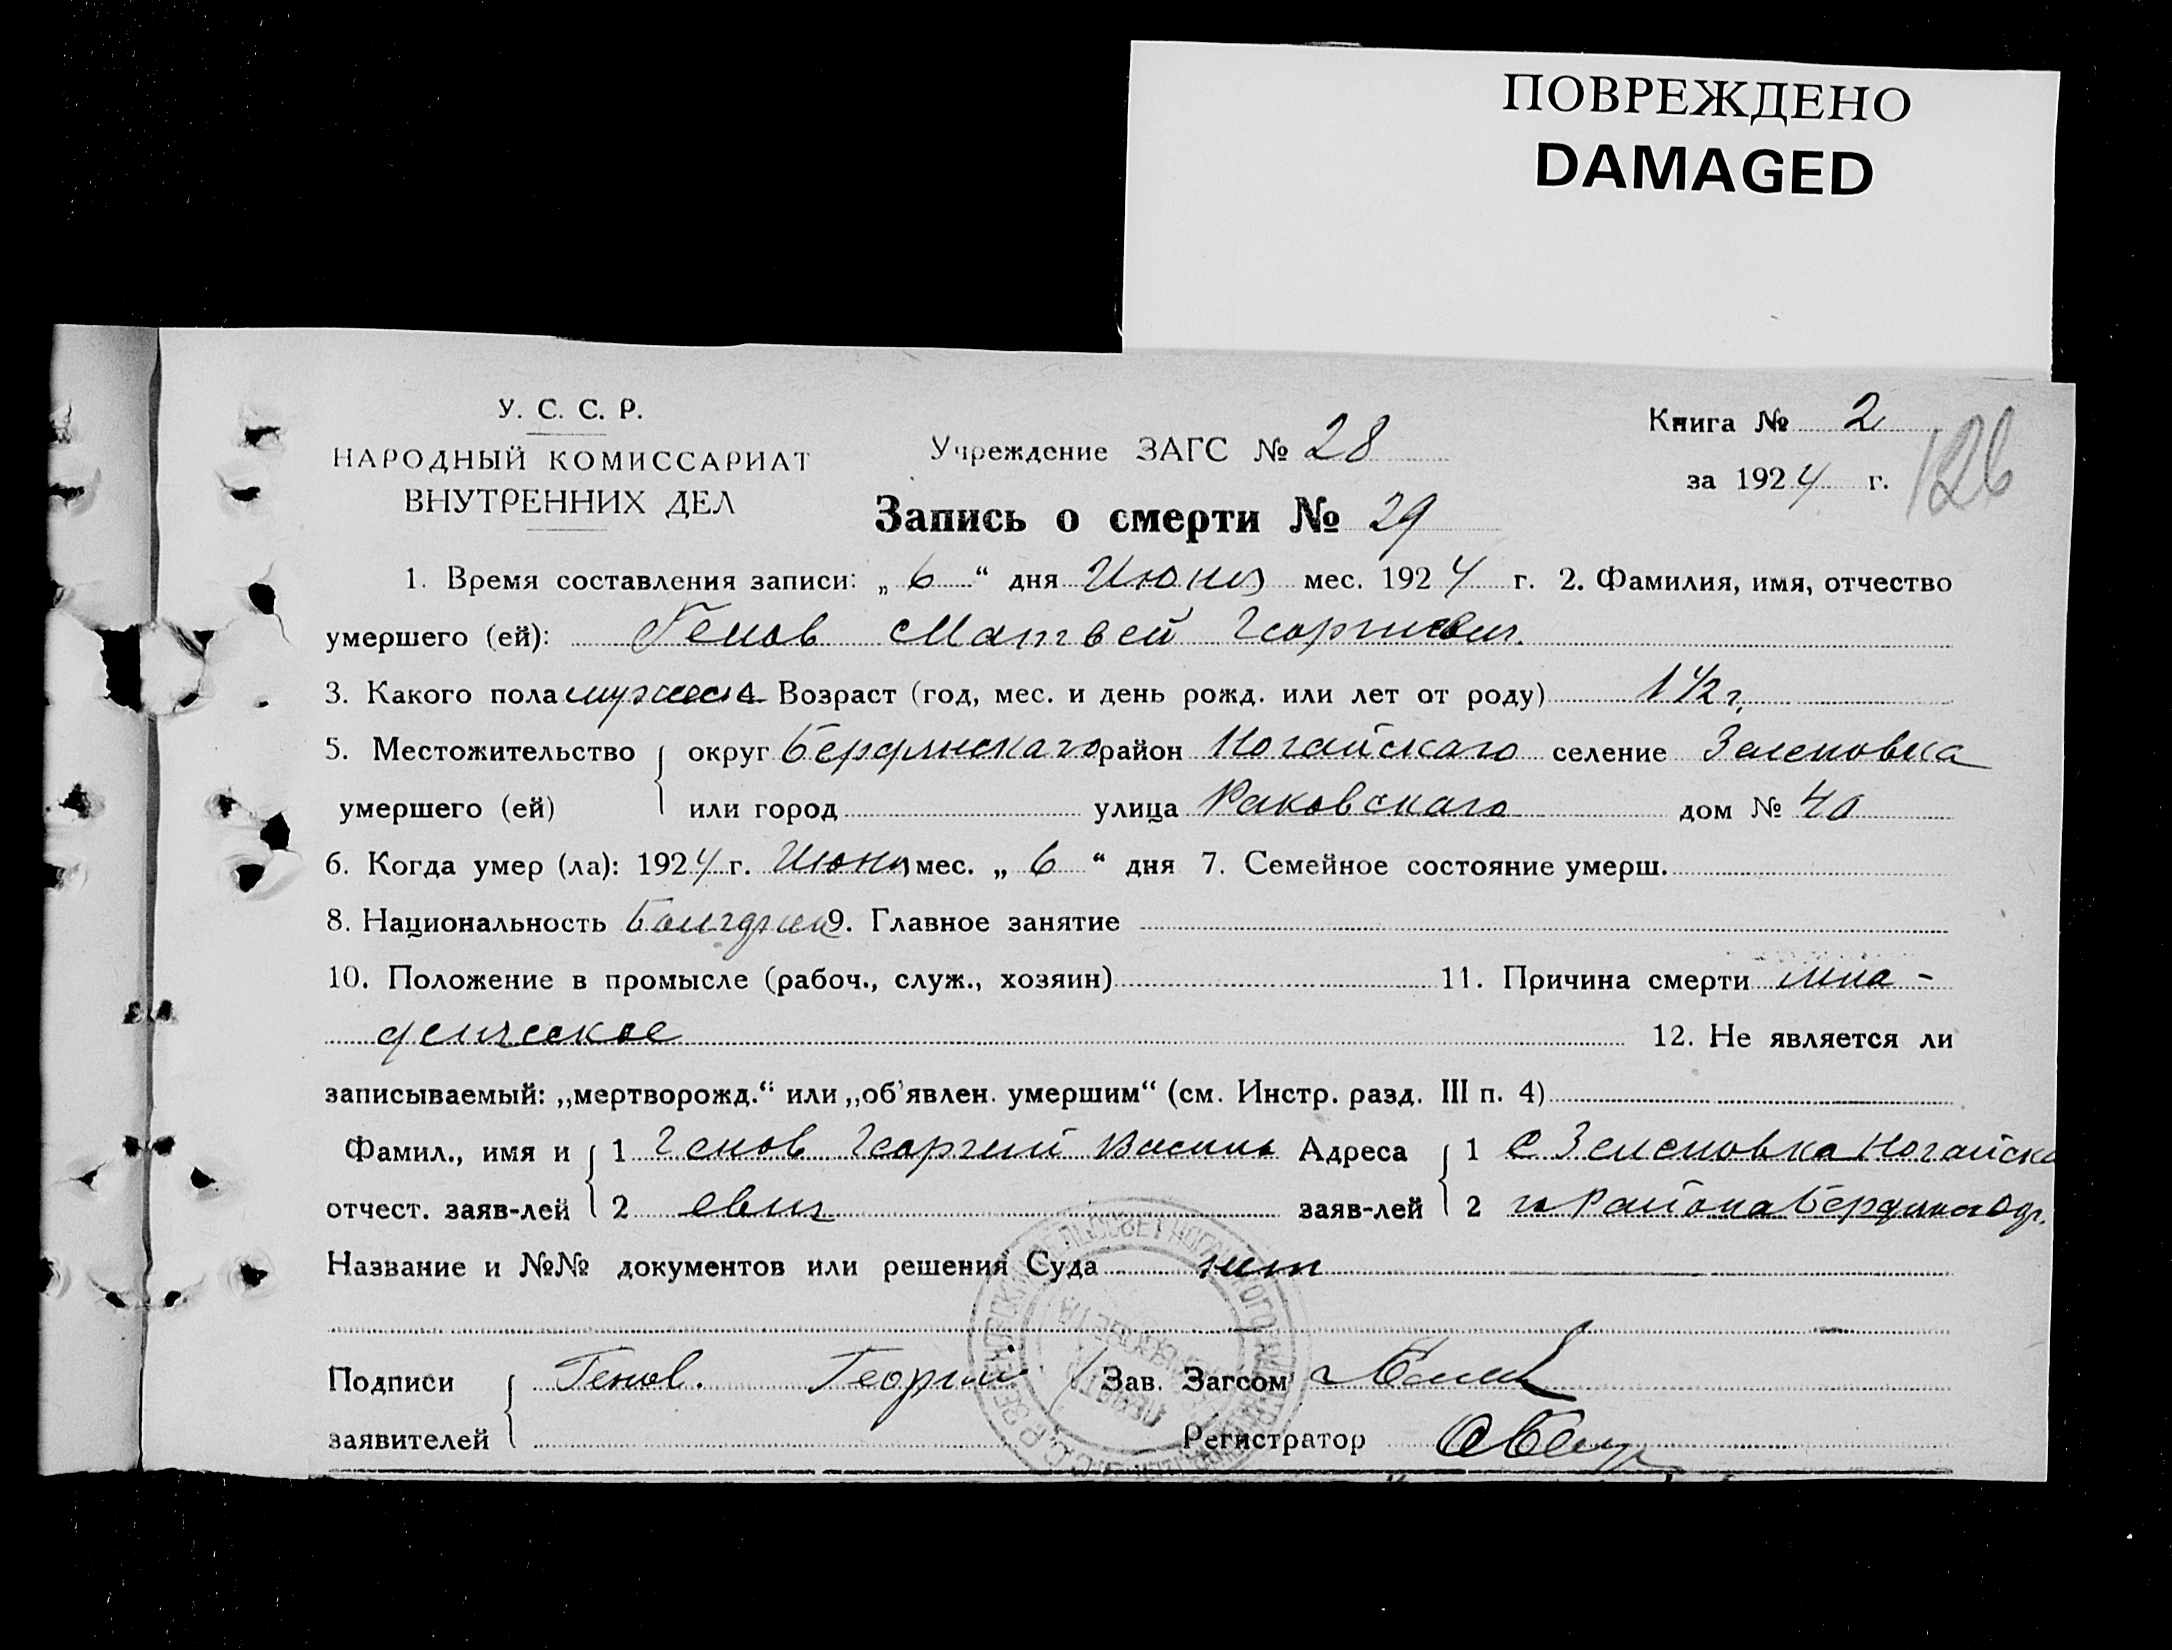 ПОВРЕЖДЕНО
DAMAGED
У. С. С. Р.
НАРОДНЫЙ КОМИССАРИАТ
ВНУТРЕННИХ ДЕЛ
Учреждение ЗАГС № 28
Книга № 2
за 1924 г.
126
Запись о смерти № 29
1. Время составления записи: „ 6 “ дня Июня мес. 1924 г. 2. Фамилия, имя, отчество
умершего (ей): Генов Матвей Георгиевич.
3. Какого пола мужеска 4. Возраст (год, мес. и день рожд. или лет от роду) 1 1/2 г.
5. Местожительство округ Бердянскаго район Ногайскаго селение Зеленовка
умершего (ей) или город улица Раковскаго дом № 40
6. Когда умер (ла): 1924 г. Июня мес. „ 6 “ дня 7. Семейное состояние умерш.
8. Национальность 9. Главное занятие
10. Положение в промысле (рабоч., служ., хозяин) 11. Причина смерти мла-
денческое 12. Не является ли
записываемый: „мертворожд.“ или „об'явлен. умершим“ (см. Инстр. разд. III п. 4)
Фамил., имя и 1 Генов Георгий Василь Адреса 1 С Зеленовка Ногайска
отчест. заяв-лей 2 евич заяв-лей 2 го Района
Название и №№ документов или решения Суда нет
Подписи Генов. Георги Зав. Загсом
заявителей Регистратор